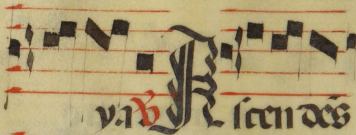 ya ℣ Ascendēs